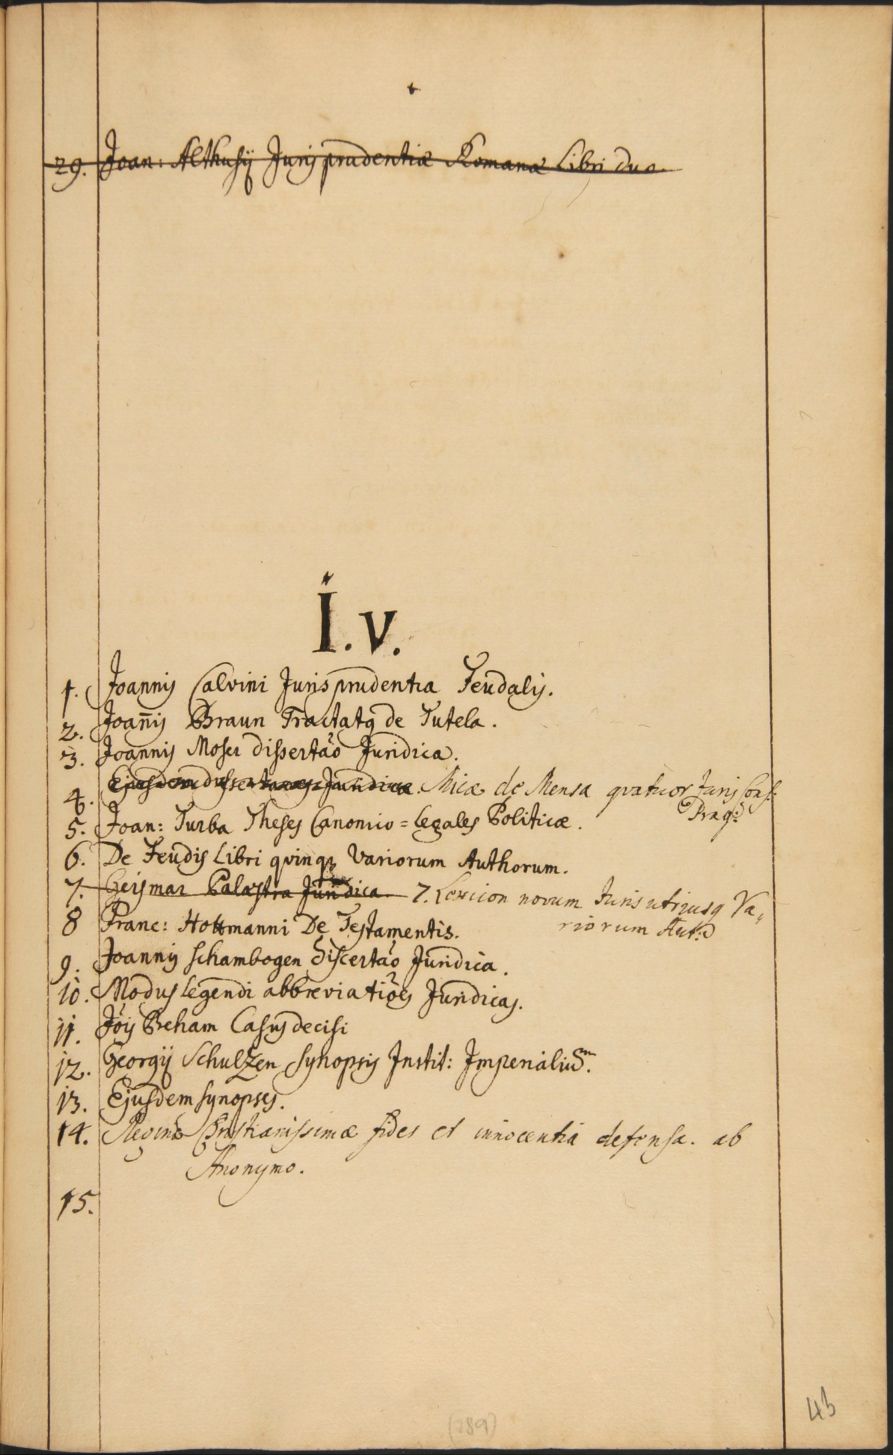 29. Joan: Althusij Jurisprudentiæ Romanæ Libri duo
I. v.
1. Joannis Calvini Jurisprudentia Feudalis.
2. Joañis Braun Tractatq de Tutela.
3. Joannis Moser dissertaõ Juridica.
4. Ejusdem Juridica. Micæ de Mensa quatuor Juris
Prag:
5. Joan: Turba Theses Canonico = legales Politicæ.
6. De Feudis Libri qvinqȝ Variorum Authorum.
7. Geismar Palæstra Juridica 7. Lexicon novum Juris utriusq Va„
riorum Aut:
8 Franc: Hottmanni De Testamentis.
9. Joannis Schambogen Discertaõ Juridica.
10. Modus legendi abbreviatiões Juridicas.
11. Jõis Beham Casus decisi
12. Georgij Schulzen Synopsis Instit: Imperialium.
13. Ejusdem synopses.
14. Reginæ Christianissimæ fides et innocentia defensa. ab
Anonymo.
15.
(289)
43